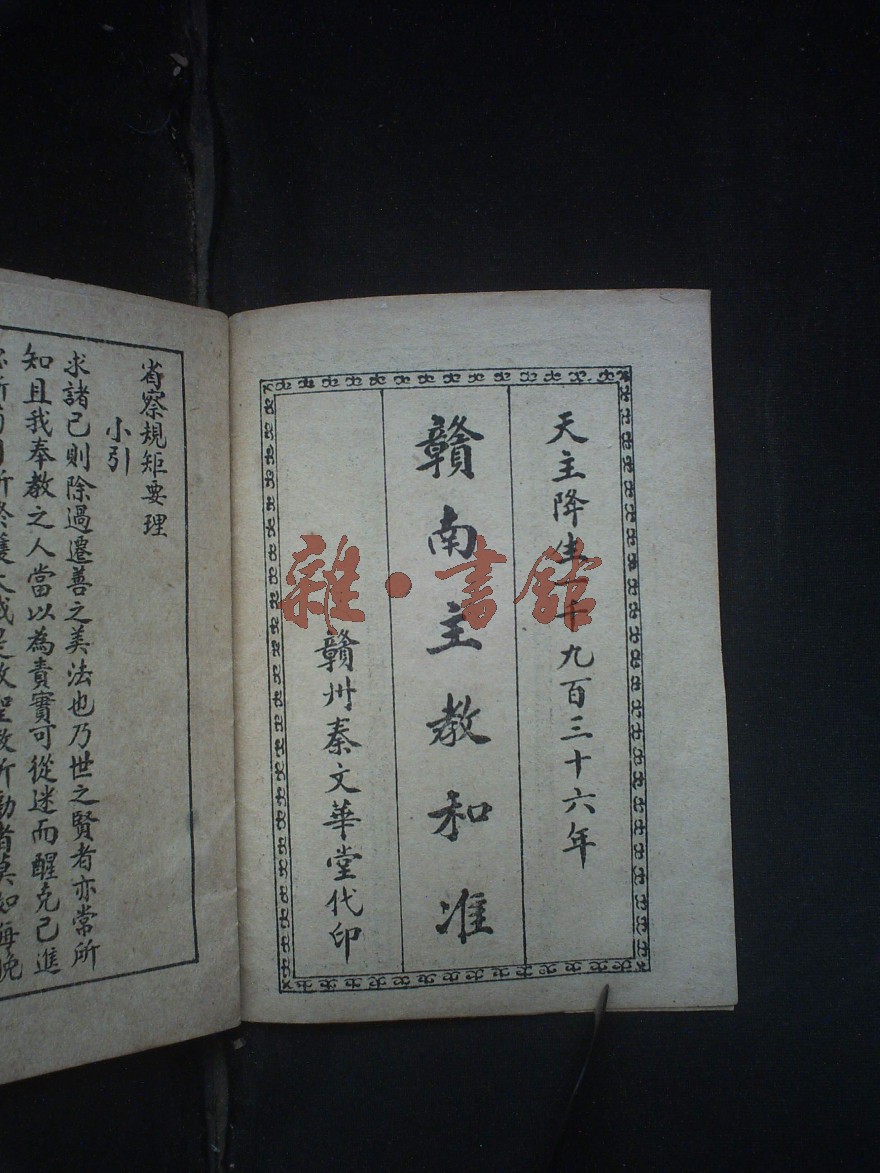 天主降生一千九百三十六年
贛南主教和准
贛州秦文華堂代印
雜·書館
省察規矩要理
小引
求諸己則除過遷善之美法也乃世之賢者亦常所
知且我奉教之人當以為責實可從迷而醒克己進